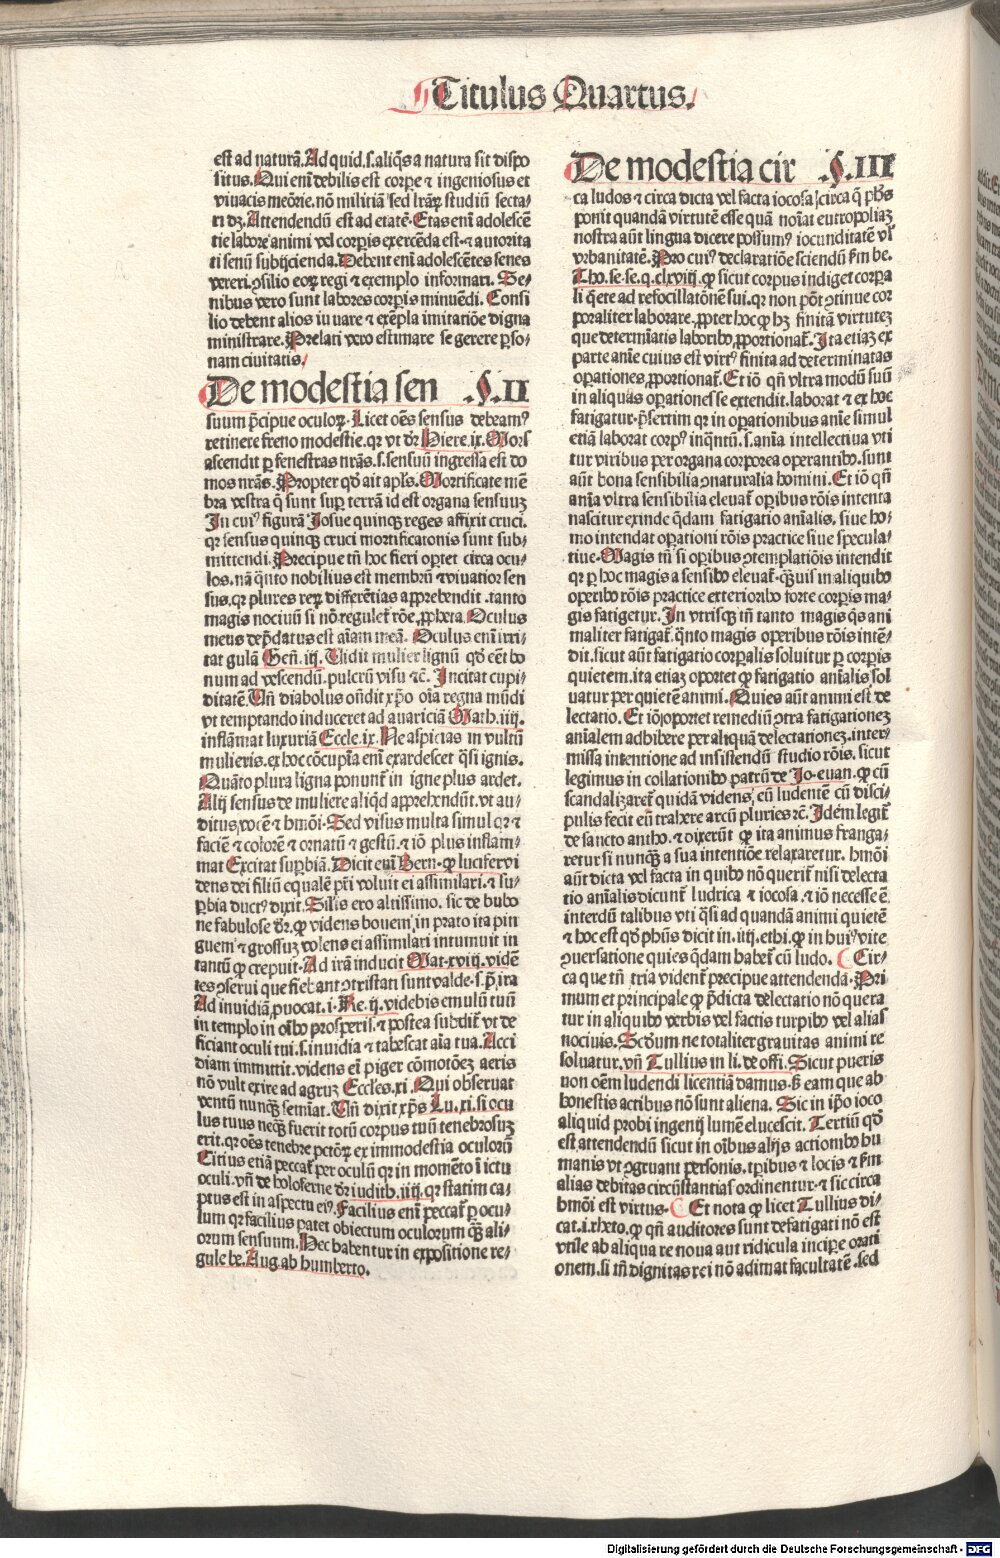 Titulus Quartus.
est ad naturā. Ad quid. s. aliq̄s a natura sit dispo
situs. Qui eni debilis est corpe ⁊ ingeniosus et
viuacis meōrie. nō militiā sed lrāꝝ studiū secta-
ri dꝫ. Attendendū est ad etatē. Etas enī adolescē
tie labore animi vel corpis exercēda est. ⁊ autorita
ti senū subijcienda. Debent eni adolescētes senes
vereri. ꝯsilio eoꝝ regi ⁊ exemplo informari. Se-
nibus vero sunt labores corpis minuēdi. Consi
lio debent alios iuuare ⁊ exēpla imitatiōe digna
ministrare. Prelati vero estimare se gerere pso-
nam ciuitatis
De modestia sen .§.II
suum p̄cipue oculoꝝ. Licet oēs sensus debeamꝰ
retinere freno modestie. qr vt dr̄ Hiere. ix. Mors
ascendit ꝑ fenestras nrās. s. sensuū ingressa est do
mos nrās. Propter qd̄ ait apls. Mortificate mē
bra vestra q̄ sunt suꝑ terrā id est organa sensuuꝫ
In cuiꝰ figurā Josue quinqꝫ reges affixit cruci.
qr sensus quinqꝫ cruci mortificatonis sunt sub-
mittendi. Precipue tn̄ hoc fieri oꝑtet circa ocu-
los. nā q̄nto nobilius est membrū ⁊ viuatior sen
sus. qr plures reꝝ differētias apprehendit. tanto
magis nociuū si nō reguletʳ rōe. ꝓpheta. Oculus
meus dep̄datus est aīam meā. Oculus enī irri
tat gulā Gen̄. iij. Vidit mulier lignū qd̄ eēt bo
num ad vescendū. pulcrū visu ⁊c. Incitat cupi-
ditatē. Vn̄ diabolus on̄dit xp̄o oīa regna mūdi
vt temptando induceret ad auariciā Math. iiij.
inflāmat luxuriā Eccle. ix. Ne aspicias in vultū
mulieris. ex hoc cōcupīa eni exardescet q̄si ignis.
Quāto plura ligna ponunt̄ in igne plus ardet.
Alij sensus de muliere aliqd apprehendūt. vt au-
ditus vocē ⁊ hmōi. Sed visus multa simul qr ⁊
faciē ⁊ colorē ⁊ ornatū ⁊ gestū. ⁊ iō plus inflam-
mat Excitat supbiā. Dicit eni Bern. ꝙ lucifer vi
dens dei filiū equalē pr̄i voluit ei assimilari. ⁊ su-
ꝑbia ductꝰ dixit. Silis ero altissimo. sic de bubo
ne fabulose dr̄. ꝙ videns bouem in prato ita pin
guem ⁊ grossuꝫ volens ei assimilari intumuit in
tantū ꝙ crepuit. Ad irā inducit Mat. xviij. vidē
tes ꝯserui que fiebant ꝯtristati sunt valde. s. ꝑ ira
Ad inuidiā ꝓuocat. i. Re. ij. videbis emulū tuū
in templo in oībꝰ prosperis. ⁊ postea subdit̄ vt de
ficiant oculi tui. s. inuidia ⁊ tabescat aīa tua. Acci
diam immittit. videns eī piger cōmotōeꝫ aeris
nō vult exire ad agruꝫ Eccles. xi. Qui obseruat
ventū nunqꝫ semīat. Vn̄ dixit xp̄s Lu. xi. si ocu
lus tuus neqꝫ fuerit totū corpus tuū tenebrosuꝫ
erit. qr oēs tenebre pctōꝝ ex immodestia oculorū
Citius etiā peccat̄ per oculū qr in momēto ī ictu
oculi. vn̄ de holoferne dr̄ iudith. iiij. qr statim ca-
ptus est in aspectu eiꝰ. Facilius eni peccat̄ ꝑ ocu-
lum qr facilius patet obiectum oculorum qꝫ ali-
orum sensuum. Hec habentur in expositione re-
gule be. Aug. ab humberto.
De modestia cir .§.III
ca ludos ⁊ circa dicta vel facta iocosa circa q̄ ph̄s
ponit quandā virtutē esse quā noīat eutropoliaꝫ
nostra aūt lingua dicere possumꝰ iocunditatē vl̄
vrbanitatē. Pro cuiꝰ declaratiōe sciendū ẜm be.
Tho. se. se. q. clxviij. ꝙ sicut corpus indiget corpa
li q̄ete ad refocillatōnem sui. qr non pōt ꝯtinue cor
poraliter laborare. ꝓpter hoc ꝙ hꝫ finitā virtuteꝫ
que determīatis laboribꝰ. ꝓportionat̄. Ita etiaꝫ ex
parte anīe cuius est virtꝰ finita ad determinatas
opationes. ꝓportionat̄. Et iō qn̄ vltra modū suū
in aliquas opationes se extendit. laborat ⁊ ex hoc
fatigatur. p̄sertim qr in operationibus anīe simul
etiā laborat corpꝰ inq̄ntū. s. anīa intellectiua vti
tur viribus per organa corporea operantibꝰ. sunt
aūt bona sensibilia ꝯnaturalia homini. Et iō qn̄
anīa vltra sensibilia eleuat̄ opibus rōis intenta
nascitur exinde q̄dam fatigatio anīalis, siue ho-
mo intendat opationi rōis practice siue specula-
tiue. Magis tn̄ si opibus ꝯtemplatiōis intendit
qr ꝑ hoc magis a sensibꝰ eleuat̄. q̄ꝫuis in aliquibꝰ
operibꝰ rōis practice exterioribꝰ forte corpis ma-
gis fatigetur. In vtrisqꝫ tn̄ tanto magis q̄s ani
maliter fatigat̄. q̄nto magis operibus rōis intē-
dit. sicut aūt fatigatio corpalis soluitur ꝑ corpis
quietem. ita etiaꝫ oportet ꝙ fatigatio anīalis sol
uatur per quietē animi. Quies aūt animi est de
lectatio. Et iō oportet remediū ꝯtra fatigationeꝫ
anīalem adhibere per aliquā delectationeꝫ. inter-
missa intentione ad insistendū studio rōis. sicut
legimus in collationibꝰ patrū de Jo. euan. ꝙ cū
scandalizaret̄ quidā videns, eū ludentē cū disci-
pulis fecit eū trahere arcū pluries ⁊c. Idem legit̄
de sancto antho. ⁊ dixerūt ꝙ ita animus franga-
retur si nunqꝫ a sua intentiōe relaxaretur. hmōi
aūt dicta vel facta in quibꝰ nō querit̄ nisi delecta
tio anīalis dicunt̄ ludrica ⁊ iocosa. ⁊ iō necesse ē
interdū talibus vti q̄si ad quandā animi quietē
⁊ hoc est qd̄ ph̄us dicit in. iiij. ethi. ꝙ in huiꝰ vite
ꝯuersatione quies q̄dam habet̄ cū ludo. Cir-
ca que tn̄ tria vident̄ precipue attendenda. Pri
mum et principale ꝙ p̄dicta delectatio nō quera
tur in aliquibꝰ verbis vel factis turpibꝰ vel alias
nociuis. Scd̄um ne totaliter grauitas animi re
soluatur. vn̄ Tullius in li. de offi. Sicut pueris
non oēm ludendi licentiā damus. ẜ eam que ab
honestis actibus nō sunt aliena. Sic in ip̄o ioco
aliquid probi ingenij lumē elucescit. Tertiū qd̄
est attendendū sicut in oībus alijs actionibꝰ hu
manis vt ꝯgruant personis. tp̄ibus ⁊ locis ⁊ ẜm
alias debitas circūstantias ordinentur. ⁊ sic circa
hmōi est virtus. Et nota ꝙ licet Tullius di-
cat. i. rheto. ꝙ qn̄ auditores sunt defatigati nō est
vtile ab aliqua re noua aut ridicula incipe orati
onem. si tn̄ dignitas rei nō adimat facultatē. sed
Digitalisierung gefördert durch die Deutsche Forschungsgemeinschaft - DFG